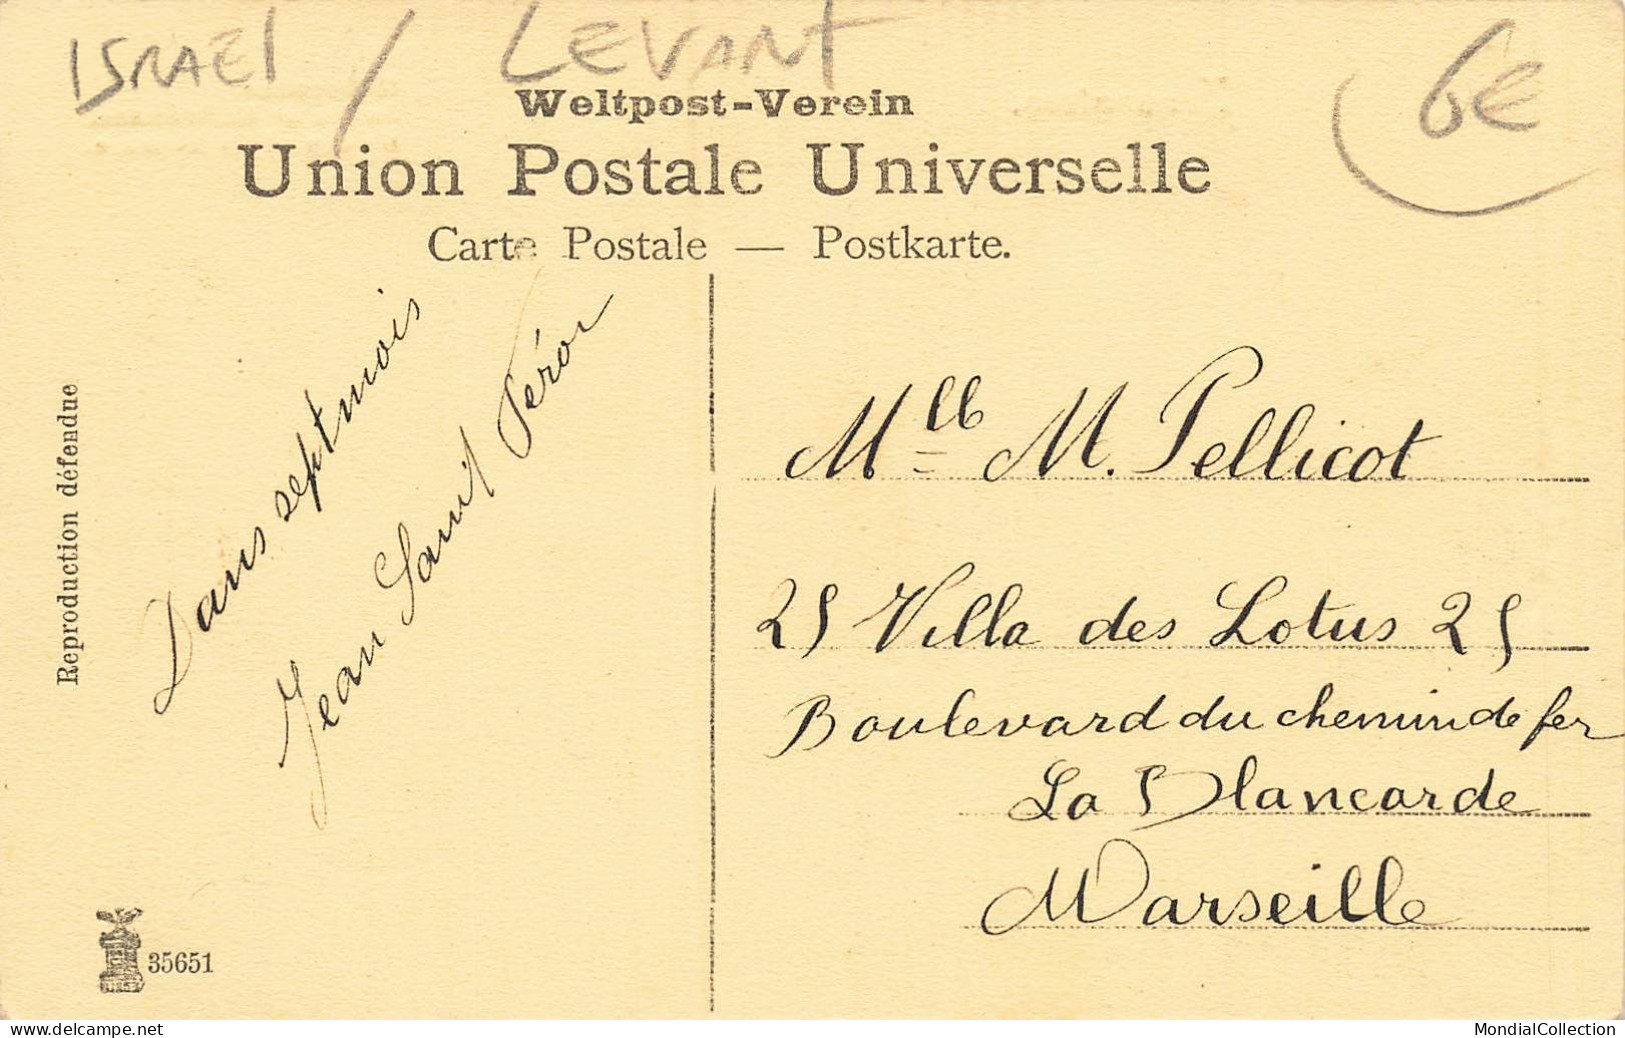 ISRAEL / LEVANT
6€
Weltpost-Verein
Union Postale Universelle
Carte Postale — Postkarte.
Reproduction défendue
Dans sept mois
Jean Saint Péron
Mlle M. Pellicot
25 Villa des Lotus 25
Boulevard du chemin de fer
La Blancarde
Marseille
35651
www.delcampe.net
MondialCollection